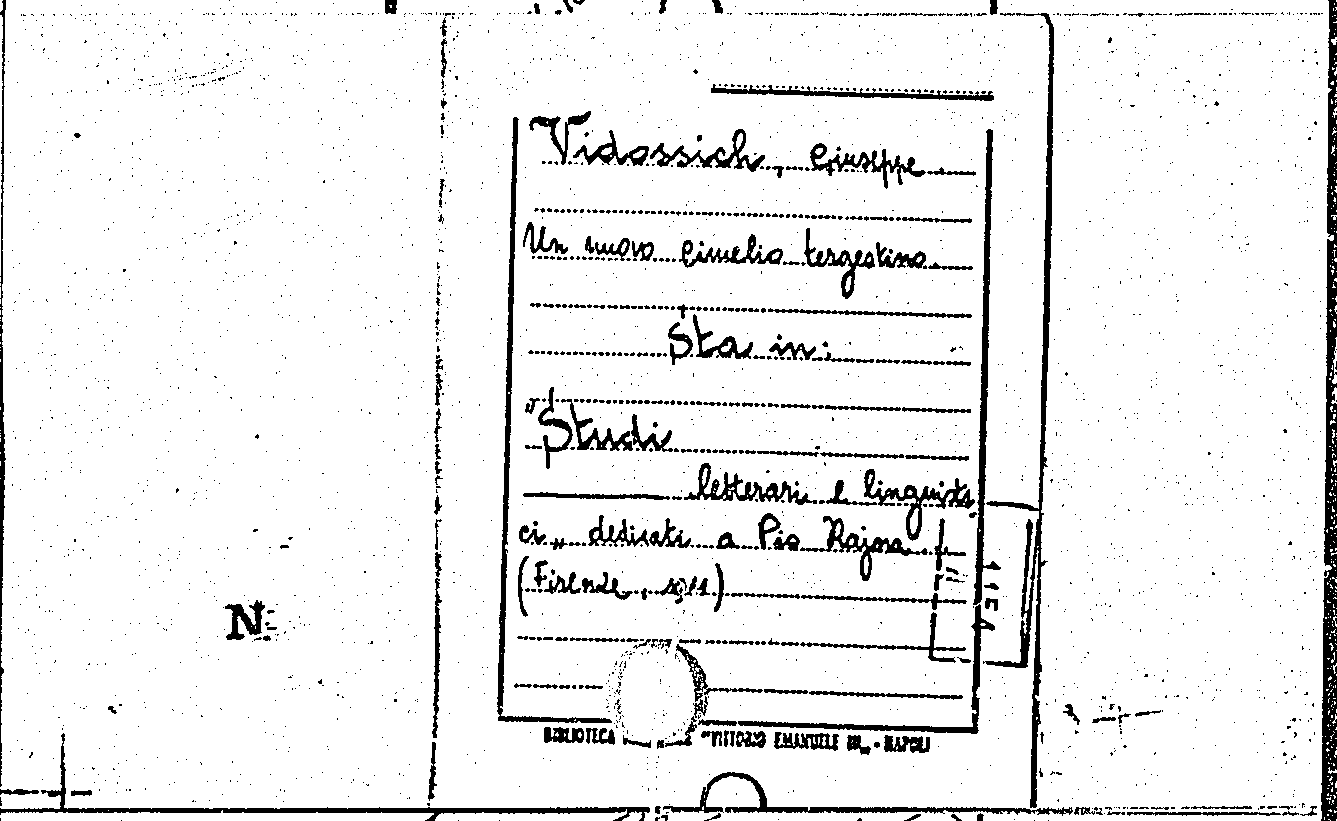 Vidossich, Giuseppe
Un nuovo cimelio tergestino.
Sta in:
"Studi
letterari e linguisti
ci„ dedicati a Pio Rajna.
(Firenze, 1911)
N
BIBLIOTECA "VITTORIO EMANUELE III„ - NAPOLI